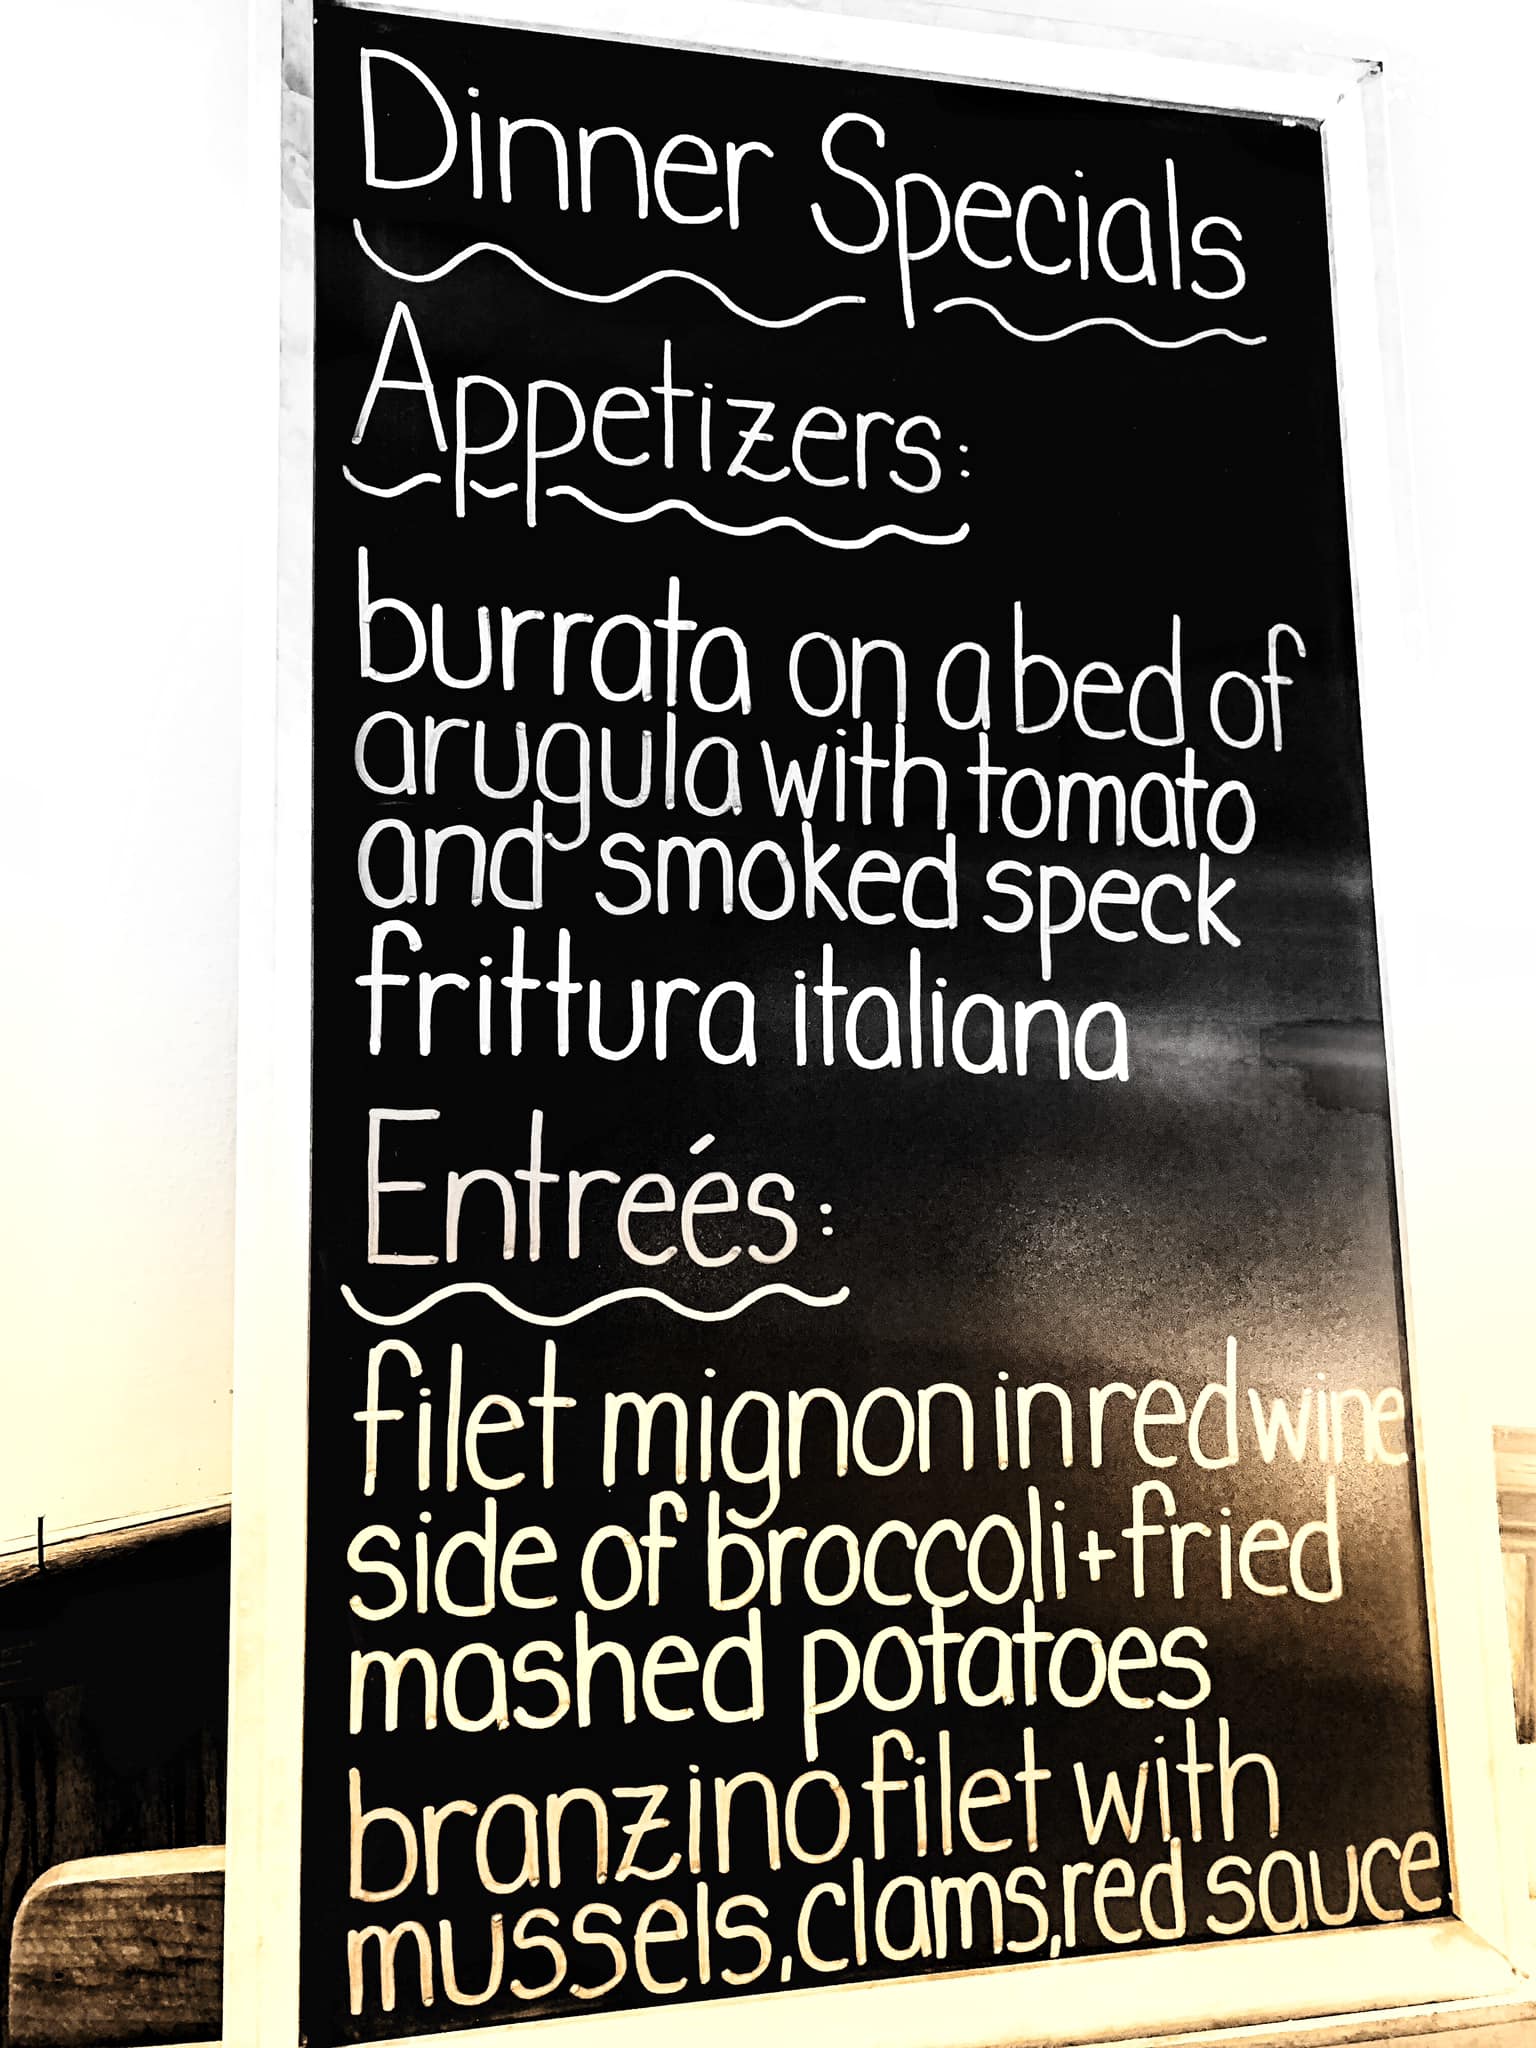 Dinner Specials
Appetizers:
burrata on a bed of
arugula with tomato
and smoked speck
frittura italiana
Entreés:
filet mignon in red wine
side of broccoli + fried
mashed potatoes
branzino filet with
mussels, clams, red sauce.